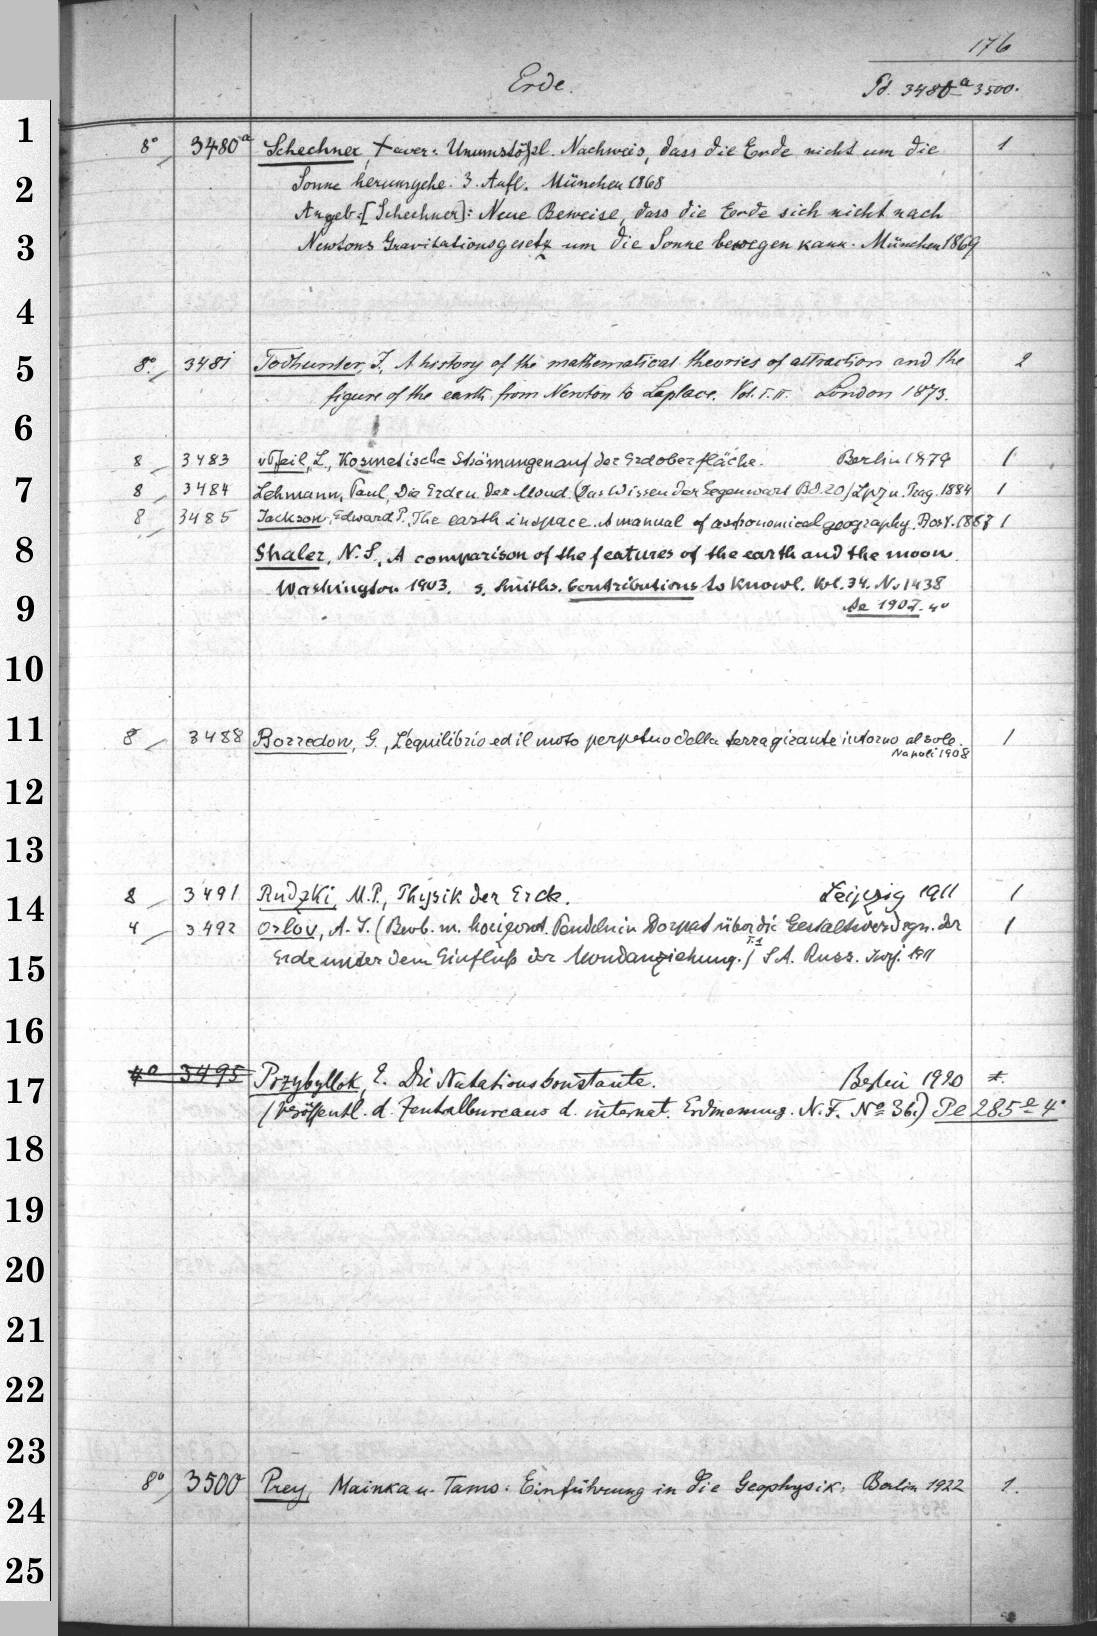 176
Erde.
Pd. 3480a 3500.
8° 3480a Schechner, Xaver: Unumstößl. Nachweis, dass die Erde nicht um die 1
Sonne herumgehe. 3. Aufl. München 1868
Angeb: [Schechner]: Neue Beweise, dass die Erde sich nicht nach
Newtons Gravitationsgesetz um die Sonne bewegen kann. München 1869
8° 3481 Todhunter, I., A history of the mathematical theories of attraction and the 2
figure of the earth from Newton to Laplace. Vol. I. II. London 1873.
8 3483 v. Pfeil, L., Kosmetische Strömungen auf der Erdoberfläche. Berlin 1879 1
8 3484 Lehmann, Paul, Die Erde u. der Mond. (Das Wissen der Gegenwart Bd. 20) Lpz u. Prag. 1884 1
8 3485 Jackson, Edward P., The earth in space. A manual of astronomical geography. Bost. 1887 1
Shaler, N. S., A comparison of the features of the earth and the moon.
Washington 1903. s. Smiths. Contributions to Knowl. Vol. 34. No 1438
Ae 1902. 4°
8 3488 Borredon, G., L'equilibrio ed il moto perpetuo della terra girante intorno al sole. 1
Napoli 1908
8 3491 Rudzki, M. P., Physik der Erde. Leipzig 1911 1
4 3492 Orlov, A. J. (Beob. m. horizont. Pendeln in Dorpat über die Gestaltsverdrgn. der 1
T. 1
Erde unter dem Einfluß der Mondanziehung.) S. A. Russ. Jurj. 1911
4° 3495 Przybyllok, E. Die Nutationskonstante. Berlin 1920 1.
(Veröffentl. d. Zentralbureaus d. internat. Erdmessung. N. F. No 36.) Pe 285e 4°
8° 3500 Prey, Mainka u. Tams: Einführung in die Geophysik. Berlin 1922 1.
1
2
3
4
5
6
7
8
9
10
11
12
13
14
15
16
17
18
19
20
21
22
23
24
25